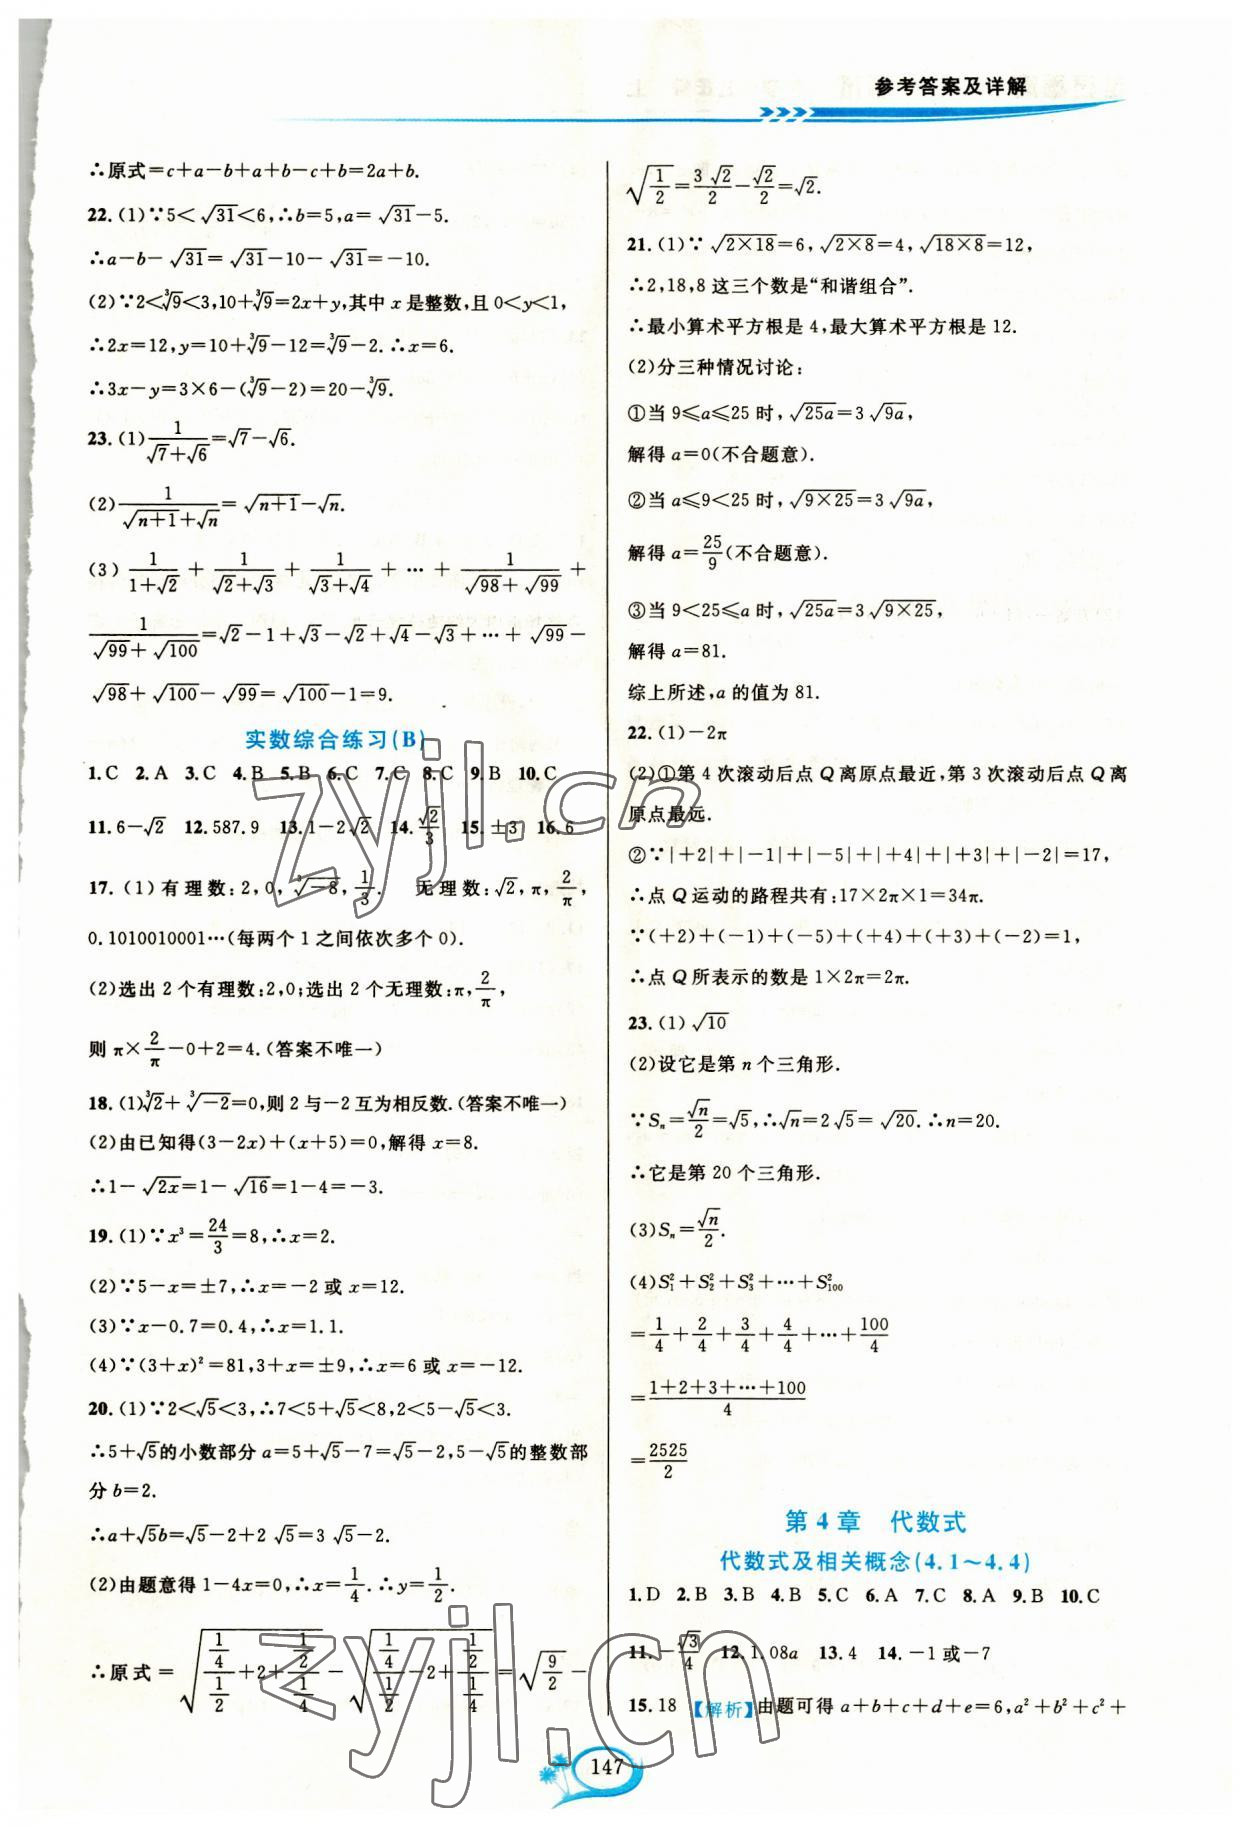 参考答案及详解
∴原式=c+a−b+a+b−c+b=2a+b.
22.(1)∵5<√31<6,∴b=5,a=√31−5.
∴a−b−√31=√31−10−√31=−10.
(2)∵2<∛9<3,10+∛9=2x+y,其中 x 是整数,且 0<y<1,
∴2x=12,y=10+∛9−12=∛9−2.∴x=6.
∴3x−y=3×6−(∛9−2)=20−∛9.
23.(1)1/(√7+√6)=√7−√6.
(2)1/(√(n+1)+√n)=√(n+1)−√n.
(3)1/(1+√2)+1/(√2+√3)+1/(√3+√4)+⋯+1/(√98+√99)+
1/(√99+√100)=√2−1+√3−√2+√4−√3+⋯+√99−
√98+√100−√99=√100−1=9.
实数综合练习(B)
1.C 2.A 3.C 4.B 5.B 6.C 7.C 8.C 9.B 10.C
11.6−√2 12.587.9 13.1−2√2 14.√2/3 15.±3 16.6
17.(1)有理数:2,0,∛−8,1/3. 无理数:√2,π,2/π,
0.1010010001⋯(每两个 1 之间依次多个 0).
(2)选出 2 个有理数:2,0;选出 2 个无理数:π,2/π,
则 π×2/π−0+2=4.(答案不唯一)
18.(1)∛2+∛−2=0,则 2 与−2 互为相反数.(答案不唯一)
(2)由已知得(3−2x)+(x+5)=0,解得 x=8.
∴1−√(2x)=1−√16=1−4=−3.
19.(1)∵x³=24/3=8,∴x=2.
(2)∵5−x=±7,∴x=−2 或 x=12.
(3)∵x−0.7=0.4,∴x=1.1.
(4)∵(3+x)²=81,3+x=±9,∴x=6 或 x=−12.
20.(1)∵2<√5<3,∴7<5+√5<8,2<5−√5<3.
∴5+√5的小数部分 a=5+√5−7=√5−2,5−√5的整数部
分 b=2.
∴a+√5b=√5−2+2√5=3√5−2.
(2)由题意得 1−4x=0,∴x=1/4.∴y=1/2.
∴原式=√((1/4)/(1/2)+2+(1/2)/(1/4))−√((1/4)/(1/2)−2+(1/2)/(1/4))=√(9/2)−
√(1/2)=3√2/2−√2/2=√2.
21.(1)∵√(2×18)=6,√(2×8)=4,√(18×8)=12,
∴2,18,8 这三个数是“和谐组合”.
∴最小算术平方根是 4,最大算术平方根是 12.
(2)分三种情况讨论:
①当 9⩽a⩽25 时,√(25a)=3√(9a),
解得 a=0(不合题意).
②当 a⩽9<25 时,√(9×25)=3√(9a),
解得 a=25/9(不合题意).
③当 9<25⩽a 时,√(25a)=3√(9×25),
解得 a=81.
综上所述,a 的值为 81.
22.(1)−2π
(2)①第 4 次滚动后点 Q 离原点最近,第 3 次滚动后点 Q 离
原点最远.
②∵|+2|+|−1|+|−5|+|+4|+|+3|+|−2|=17,
∴点 Q 运动的路程共有:17×2π×1=34π.
∵(+2)+(−1)+(−5)+(+4)+(+3)+(−2)=1,
∴点 Q 所表示的数是 1×2π=2π.
23.(1)√10
(2)设它是第 n 个三角形.
∵Sₙ=√n/2=√5,∴√n=2√5=√20.∴n=20.
∴它是第 20 个三角形.
(3)Sₙ=√n/2.
(4)S₁²+S₂²+S₃²+⋯+S₁₀₀²
=1/4+2/4+3/4+4/4+⋯+100/4
=(1+2+3+⋯+100)/4
=2525/2
第 4 章 代数式
代数式及相关概念(4.1～4.4)
1.D 2.B 3.B 4.B 5.C 6.A 7.C 8.A 9.B 10.C
11.−√3/4 12.1.08a 13.4 14.−1 或−7
15.18 【解析】由题可得 a+b+c+d+e=6,a²+b²+c²+
147
zyjl.cn
zyjl.cn